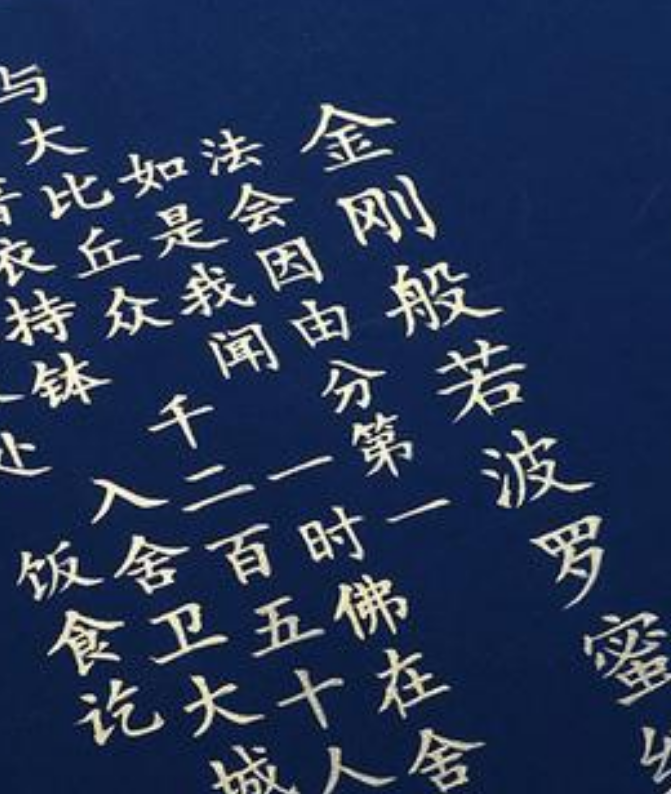 金刚般若波罗蜜
法会因由分第一
如是我闻 一时佛在舍
与大比丘众 千二百五十人
衣持钵 入舍卫大城
处 饭食讫